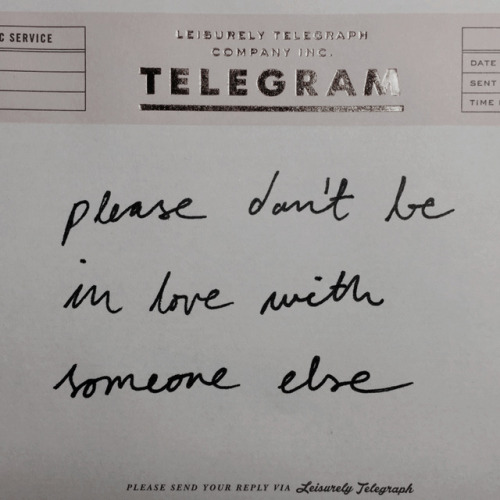 C SERVICE
LEISURELY TELEGRAPH
COMPANY INC.
TELEGRAM
DATE
SENT
TIME
please don't be
in love with
someone else
PLEASE SEND YOUR REPLY VIA Leisurely Telegraph